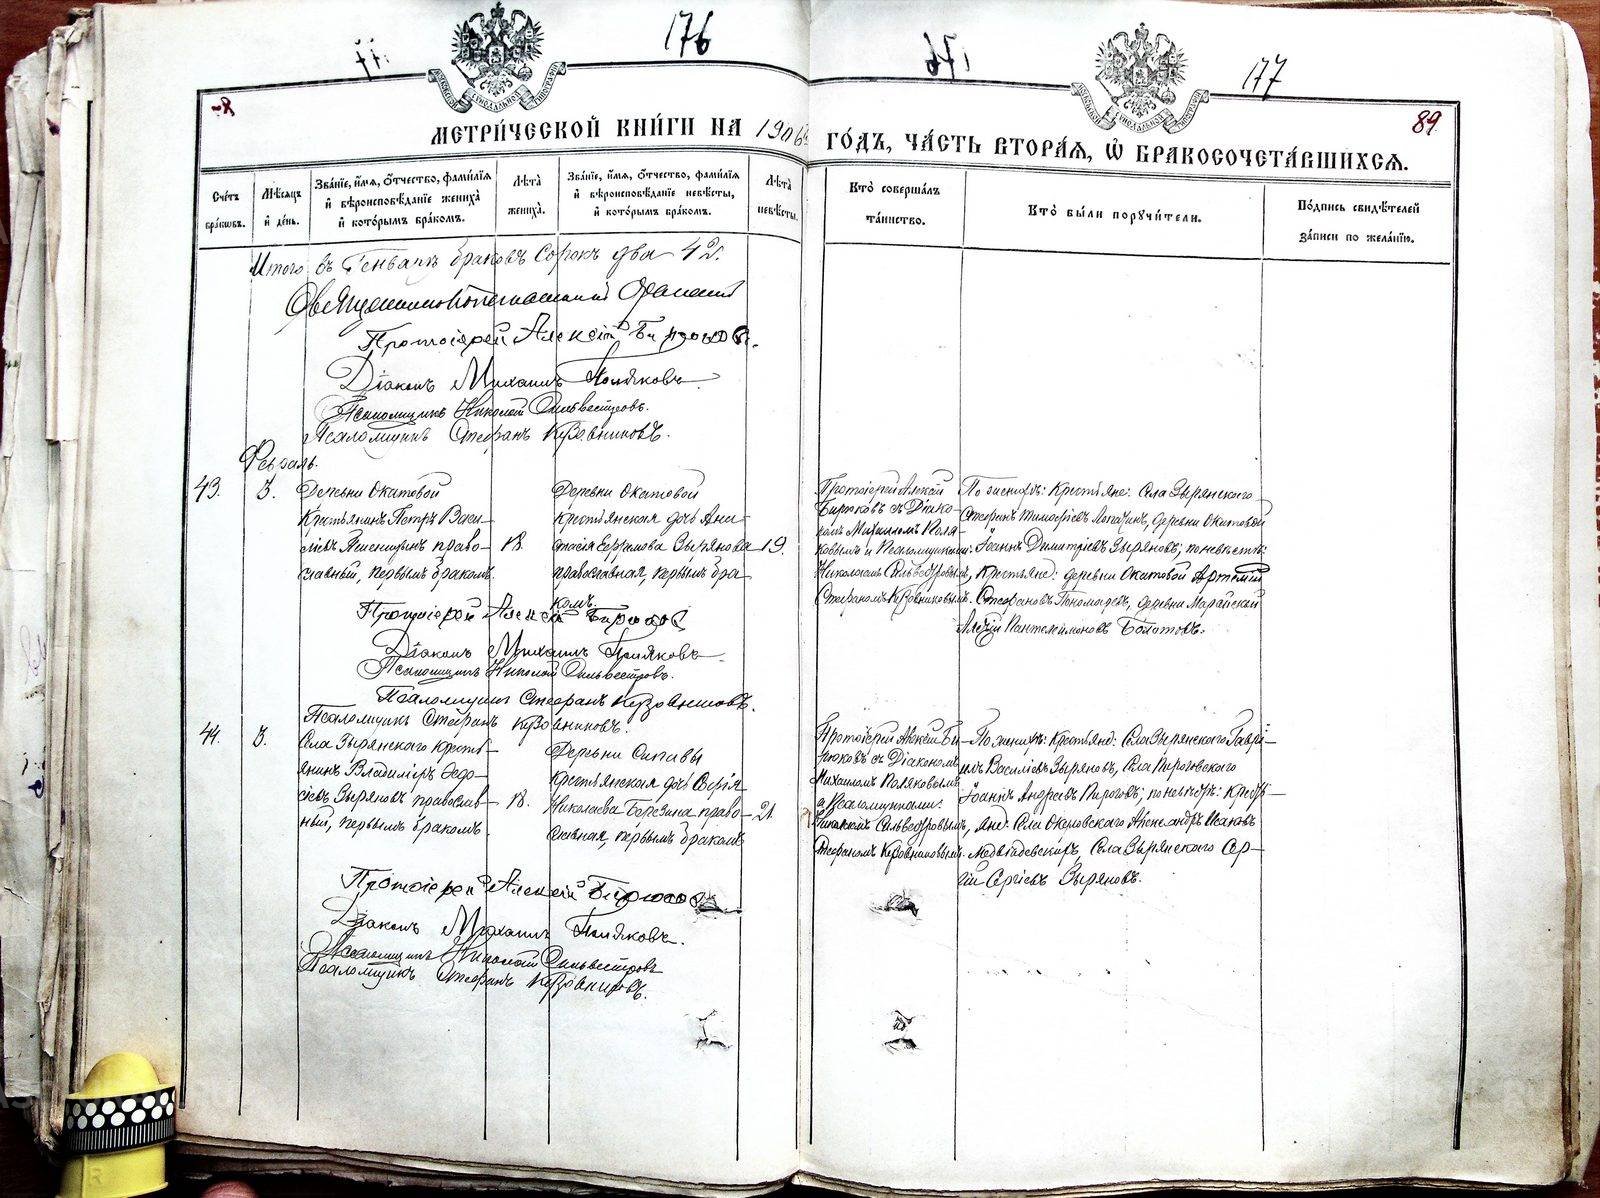 176
177
89
МЕТРИ́ЧЕСКОЙ КНИ́ГИ НА 1906й ГО́ДЪ, ЧА́СТЬ ВТОРА́Я, Ѡ҆ БРАКОСОЧЕТА́ВШИХСЯ.
Сче́тъ бра́ковъ.
Мѣ́сяцъ и҆ де́нь.
Зва́нїе, и҆́мя, ѻ҆́тчество, фами́лїя и҆ вѣроисповѣ́данїе жениха̀ и҆ кото́рымъ бра́комъ.
Лѣ́та жениха̀.
Зва́нїе, и҆́мя, ѻ҆́тчество, фами́лїя и҆ вѣроисповѣ́данїе невѣ́сты, и҆ кото́рымъ бра́комъ.
Лѣ́та невѣ́сты.
Кто̀ соверша́лъ та́инство.
Кто̀ бы́ли поручи́тели.
По́дпись свидѣ́телей за́писи по жела́нїю.
Итого въ Генварѣ браковъ сорокъ два 42.
Протоіерей Алексій Бирюковъ.
Діаконъ Михаилъ Поляковъ.
Псаломщикъ Николай Сильвестровъ.
Псаломщикъ Стефанъ Кузовниковъ.
Февраль.
43.
3.
Деревни Окатовой
Крестьянинъ Петръ Васи-
ліевъ Пшеницынъ право-
славный, первымъ бракомъ.
18.
Деревни Окатовой
крестьянская дочь Ана-
стасія Ефремова Зырянова
православная, первымъ бра-
комъ.
19.
Протоіерей Алексій
Бирюковъ съ Діако-
номъ Михаиломъ Поля-
ковымъ и Псаломщиками:
Николаемъ Сильвестровымъ,
Стефаномъ Кузовниковымъ.
По женихѣ: Крестьяне: Села Зырянскаго
Стефанъ Тимофеевъ Лопатинъ, деревни Окатовой
Іоаннъ Димитріевъ Зыряновъ; по невѣстѣ:
Крестьяне: деревни Окатовой Артемій
Стефановъ Пономаревъ, деревни Марайской
Алексій Пантелеимоновъ Болотовъ.
Протоіерей Алексій Бирюковъ
Діаконъ Михаилъ Поляковъ
Псаломщикъ Николай Сильвестровъ.
Псаломщикъ Стефанъ Кузовниковъ.
Псаломщикъ Стефанъ Кузовниковъ.
44.
3.
Села Зырянскаго крестья-
янинъ Владиміръ Ѳедо-
сіевъ Зыряновъ православ-
ный, первымъ бракомъ.
18.
Деревни Сипавы
крестьянская дочь
Николаева Березина право-
славная, первымъ бракомъ
21
Протоіерей Алексій Би-
рюковъ съ Діакономъ
Михаиломъ Поляковымъ
и Псаломщиками:
Николаемъ Сильвестровымъ,
Стефаномъ Кузовниковымъ.
По женихѣ: Крестьяне: Села Зырянскаго Гаврі-
илъ Василіевъ Зыряновъ, Села Пироговскаго
Іоаннъ Андреевъ Пироговъ; по невѣстѣ: Кресть-
яне: Села Окуловскаго Александръ Исаковъ
Медвѣдевскихъ, Села Зырянскаго Сер-
гій Сергіевъ Зыряновъ.
Протоіерей Алексій Бирюковъ
Діаконъ Михаилъ Поляковъ.
Псаломщикъ Николай Сильвестровъ
Псаломщикъ Стефанъ Кузовниковъ.